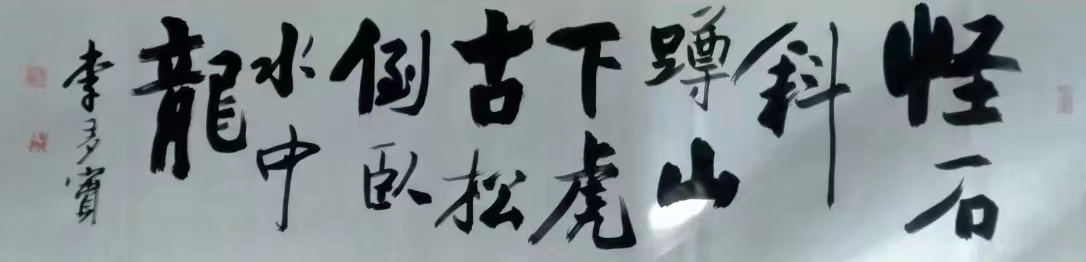 怪石
斜
蹲山
下虎
古松
倒臥
水中
龍
李多寶